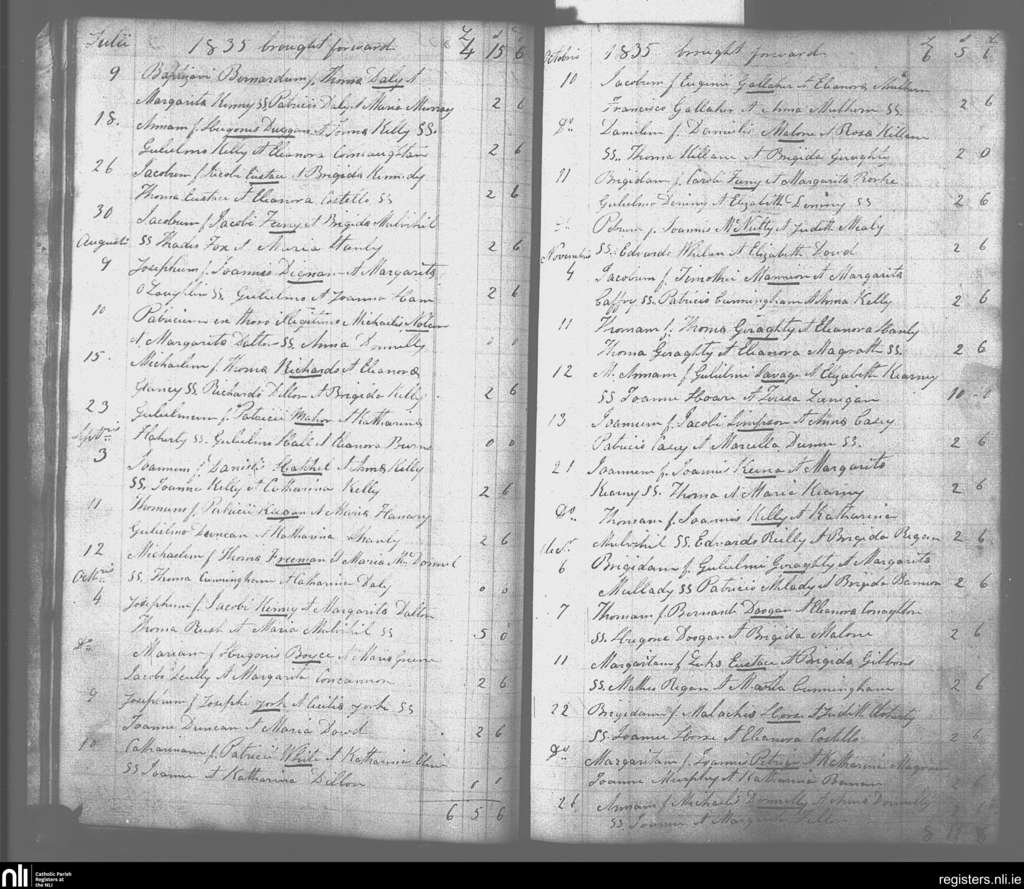 Julii 1835 brought forward £ 4 s 15 d 6
9 Baptizavi Bernardum f. Thoma Daly &
Margarita Kenny SS Patricio Daly & Maria Murray 2 6
18. Annam f. Hugonis Duggan & Anna Kelly SS.
Gulielmo Kelly & Eleanora Connaughtan 2 6
26 Jacobum f. Nicolai Eustace & Brigida Kennedy
Thoma Eustace & Eleanora Costello SS 2 6
30 Jacobum f. Jacobi Feeny & Brigida Mulvihil
Augusti SS Thadeo Fox & Maria Hanly 2 6
9 Josephum f. Joannis Dignan & Margarita
O Loughlin SS. Gulielmo & Joanna 2 6
10 Patricium ex thoro illegitimo Michaelis Nolan
& Margarita Dalton SS Anna Donnelly 0 0
15. Michaelem f. Thoma Richards & Eleanora
Glancy SS Richardo Dillon & Brigida Kelly 2 6
23 Gulielmum f. Patricii Mahor & Katharina
Flaherty SS. Gulielmo Hall & Eleanora Burne 0 0
Septbris
3 Joannem f. Danielis & Anna Kelly
SS. Joanne Kelly & Catharina Kelly 2 6
11 Thomam f. Patricii Keegan & Maria Hanary
Gulielmo Duncan & Katharina Hanly 2 6
12 Michaelem f. Thoma Freeman & Maria Mc
Octbris SS. Thoma Cunningham & Catharina Daly 0 0
4 Josephum f. Jacobi Kenny & Margarita Dalton
Thoma Rush & Maria Mulvihil SS 5 0
Do Mariam f. Hugonis Boyce & Maria Greene
Jacobo Scully & Margarita Concannon 2 6
9 Josephum f. Josephi York & Cecilia York SS
Joanne Duncan & Maria Dowd 2 6
10 Catharinam f. Patricii White & Katharina
SS Joanne & Katharina Dillon
6 5 6
Octobris 1835 brought forward £ 6 s 5 d 6
10 Jacobum f. Eugenii Gallaher & Eleanora Mulhern
Francisco Gallaher & Anna Mulhern SS 2 6
Do Danielem f. Danielis Malone & Rosa Killane
SS. Thoma Killane & Brigida Geraghty 2 0
11 Brigidam f. Caroli Feeny & Margarita Rorke
Gulielmo Dening & Elizabeth Dening SS 2 6
Petrum f. Joannis McNulty & Judith Mealy
Novembris SS. Edvardo Whelan & Elizabeth Dowd 2 6
4 Jacobum f. Timothei Mannion & Margarita
Caffry SS. Patricio Cunningham & Anna Kelly 2 6
11 Thomam f. Thoma Geraghty & Eleanora Hanly
Thoma Geraghty & Eleanora Magrath SS. 2 6
12 M. Annam f. Gulielmi Savage & Elizabeth Kearney
SS Joanne Hoare & Louisa Finegan 10 0
13 Joannem f. Jacobi Simpson & Anna Casey
Patricio Casey & Marcella Dunne SS. 2 6
21 Joannem f. Joannis Keena & Margarita
Kearny SS. Thoma & Maria Kearny 2 6
Do Thomam f. Joannis Kelly & Katharina
Mulvihil SS. Edvardo Reilly & Brigida Regan 2 6
6 Brigidam f. Gulielmi Geraghty & Margarita
Mullady SS Patricio Milady & Brigida Bannon 2 6
7 Thomam f. Bernardi Doogan & Eleanora
SS. Hugone Doogan & Brigida Malone 2 6
11 Margaritam f. Luke Eustace & Brigida Gibbons
SS. Matheo Regan & Maria Cunningham 2 6
22 Brigidam f. Malachis & Judith
SS. Joanne & Eleanora Costello 2 6
Do Margaritam f. Joannis & Katharina
Joanne Murphy & Katharina
26 Annam f. Michaelis Donnelly & Anna Donnelly
SS. Joanne & Margarita
nli Catholic Parish
Registers at
the NLI
registers.nli.ie